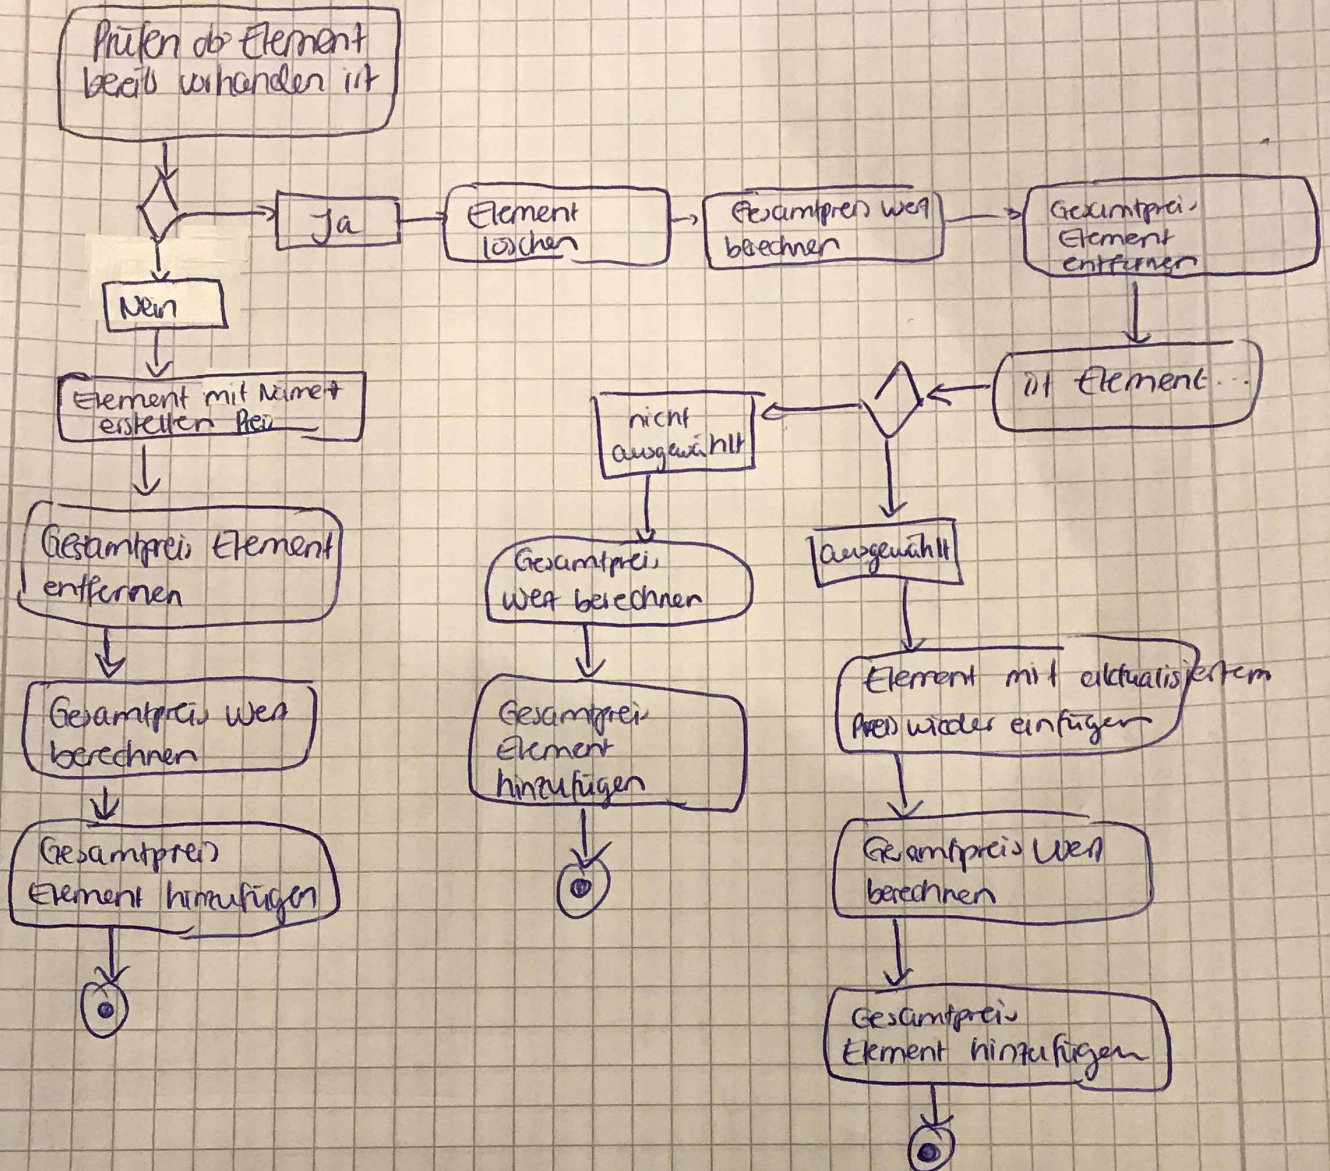 Prüfen ob Element
bereits vorhanden ist
Ja
Element
löschen
Gesamtpreis Wert
berechnen
Gesamtpreis
Element
entfernen
ist Element...
nicht
ausgewählt
ausgewählt
Nein
Element mit Name+
erstellen Preis
Gesamtpreis Element
entfernen
Gesamtpreis Wert
berechnen
Gesamtpreis
Element hinzufügen
Gesamtpreis
Wert berechnen
Gesamtpreis
Element
hinzufügen
Element mit aktualisiertem
Preis wieder einfügen
Gesamtpreis Wert
berechnen
Gesamtpreis
Element hinzufügen